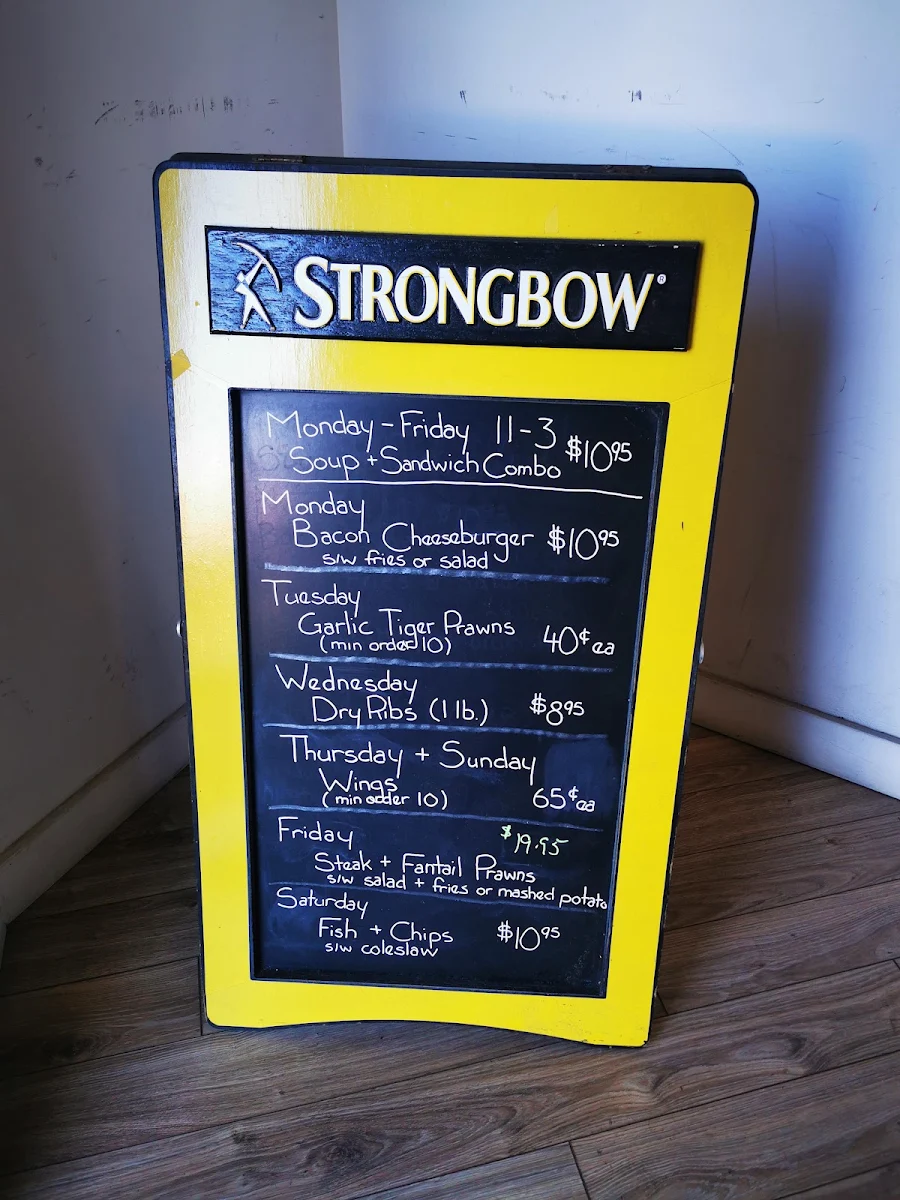 STRONGBOW®
Monday - Friday 11-3
Soup + Sandwich Combo $10.95
Monday
Bacon Cheeseburger $10.95
s/w fries or salad
Tuesday
Garlic Tiger Prawns
(min order 10) 40¢ ea
Wednesday
Dry Ribs (1 lb.) $8.95
Thursday + Sunday
Wings
(min order 10) 65¢ ea
Friday $19.95
Steak + Fantail Prawns
s/w salad + fries or mashed potato
Saturday
Fish + Chips $10.95
s/w coleslaw